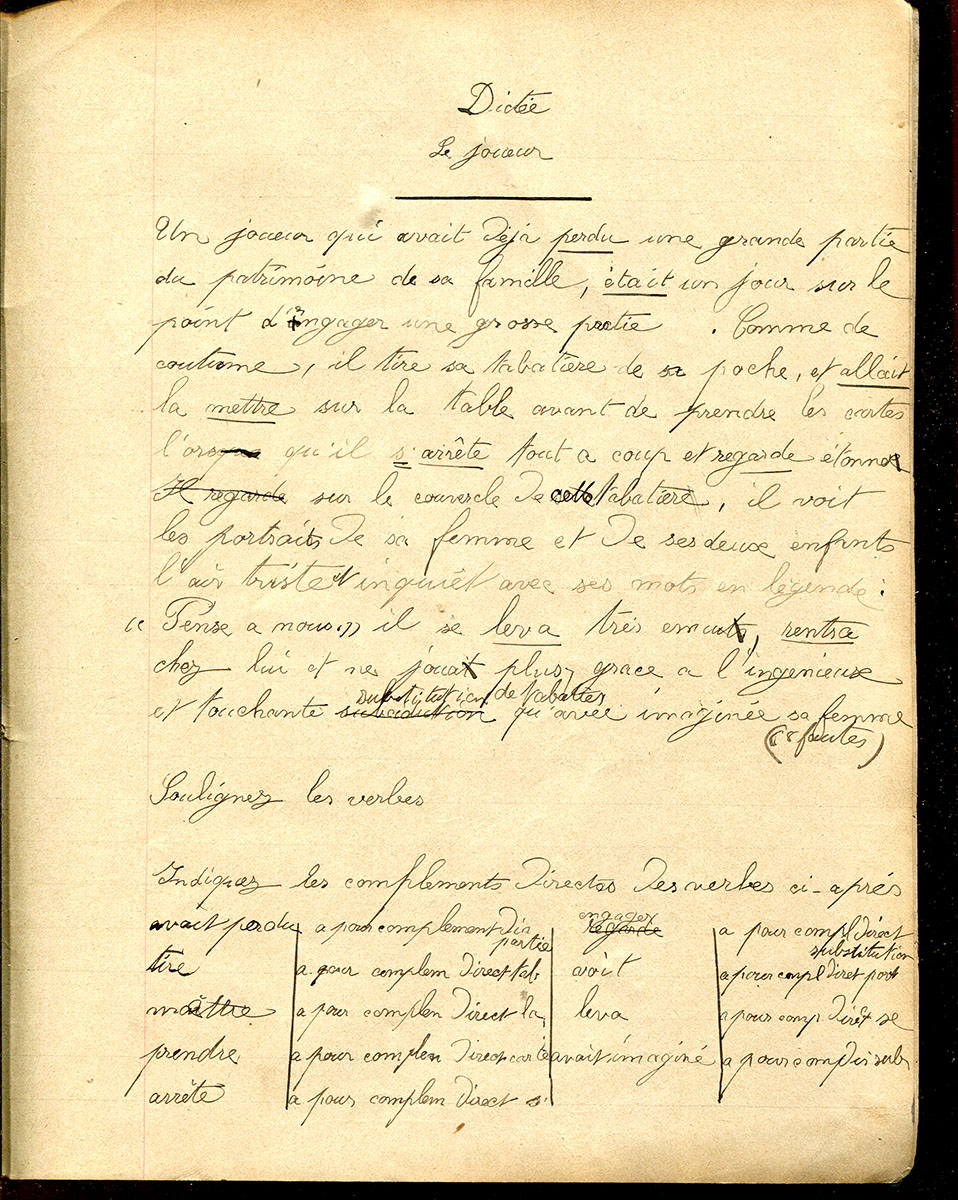 Dictée
Le joueur
Un joueur qui avait déjà perdu une grande partie
du patrimoine de sa famille, était un jour sur le
point d'engager une grosse partie . Comme de
coutume, il tire sa tabatière de sa poche, et allait
la mettre sur la table avant de prendre les cartes
l'orsque qu'il s'arrête tout a coup et regarde étonné
Il regarde sur le couvercle de cette tabatière, il voit
les portraits de sa femme et de ses deux enfants
l'air triste et inquiêt avec ses mots en légende :
« Pense a nous » il se leva très emut, rentra
chez lui et ne jouat plus, grace a l'ingenieuse
substitution de tabatière
et touchante qu'avée imaginée sa femme
(8 fautes)
Soulignez les verbes
Indiquez les complements directes des verbes ci-aprés
avait perdu a pour complement dir partie engager regarde a pour compl direct substitution
tire a pour complem direct tab voit a pour compl diret port
mettre a pour complem direct la leva a pour comp dirêt se
prendre a pour complem direct carte avait imaginé a pour comp dir sub
arrête a pour complem direct s'